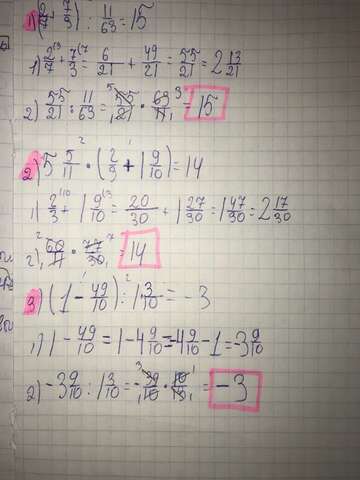 1) (2/7 + 7/3) : 11/63 = 15
1) 2/7 + 7/3 = 6/21 + 49/21 = 55/21 = 2 13/21
2) 55/21 : 11/63 = 55/21 · 63/11 = 15
2) 5 5/11 · (2/3 + 1 9/10) = 14
1) 2/3 + 1 9/10 = 20/30 + 1 27/30 = 1 47/30 = 2 17/30
2) 60/11 · 77/30 = 14
3) (1 - 49/10) : 1 3/10 = -3
1) 1 - 49/10 = 1 - 4 9/10 = -4 9/10 - 1 = -3 9/10
2) -3 9/10 : 1 3/10 = -39/10 · 10/13 = -3